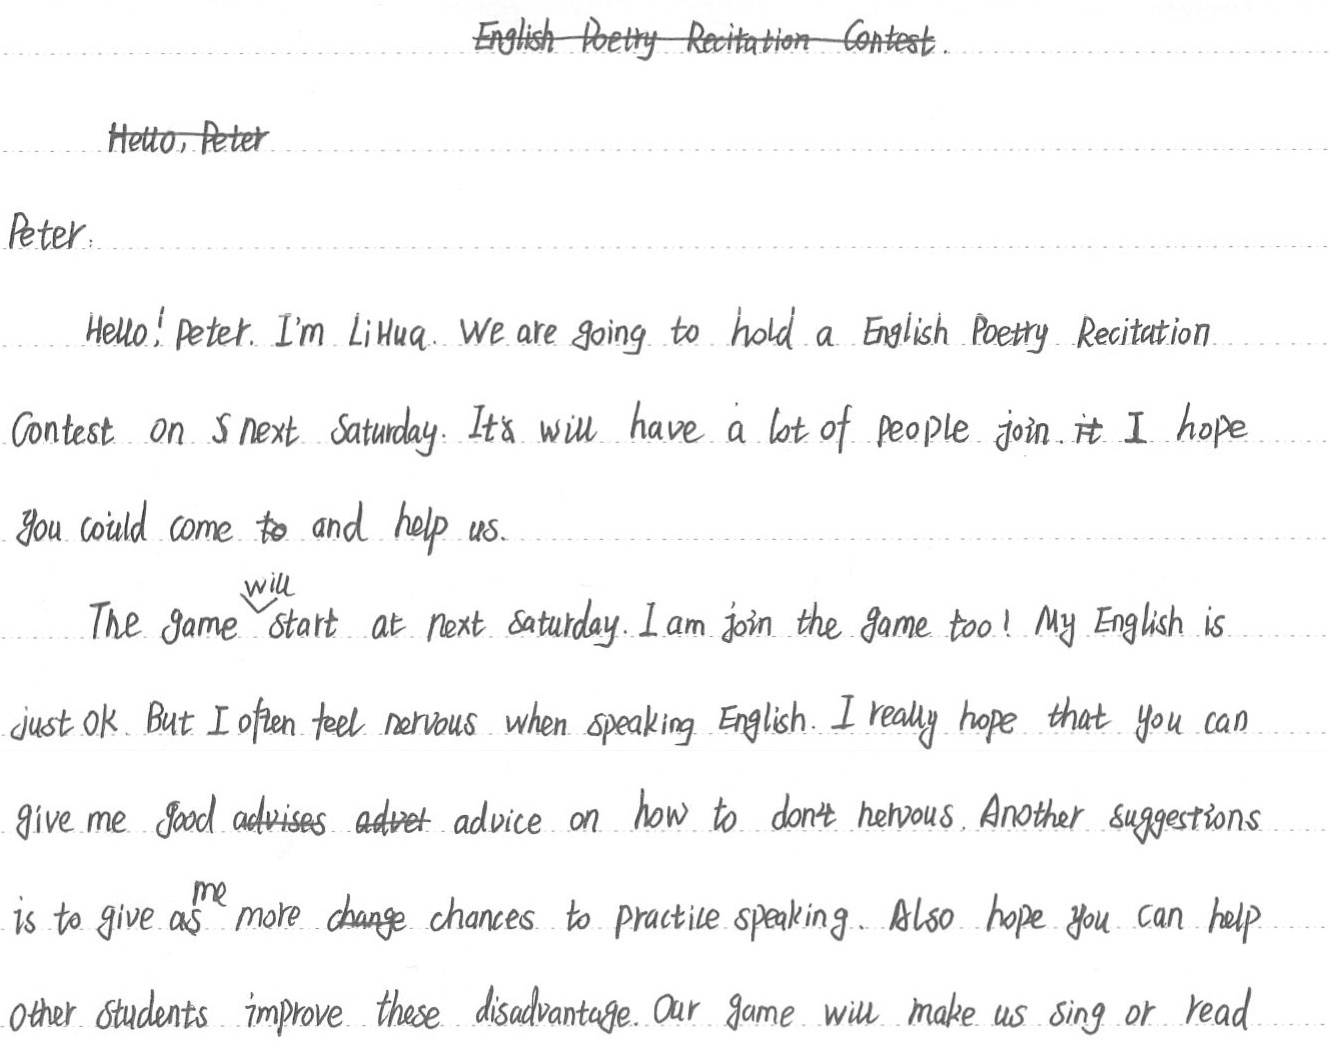 English Poetry Recitation Contest.
Hello, Peter
Peter:
Hello! Peter. I'm LiHua. We are going to hold a English Poetry Recitation
Contest on S next Saturday. It's will have a lot of people join. it I hope
you could come to and help us.
will
The game start at next Saturday. I am join the game too! My English is
just ok. But I often feel nervous when speaking English. I really hope that you can
give me good advises advet advice on how to don't nervous. Another suggestions
me
is to give as more change chances to practice speaking. Also hope you can help
other students improve these disadvantage. Our game will make us sing or read